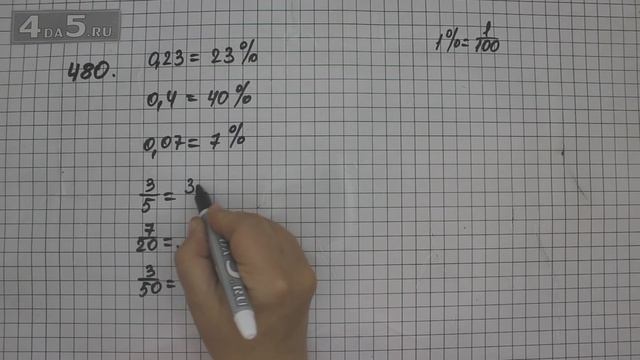 4DA5.RU
480.
0,23 = 23%
0,4 = 40%
0,07 = 7%
3/5 = 3
7/20 =
3/50 =
1% = 1/100
DA5.RU